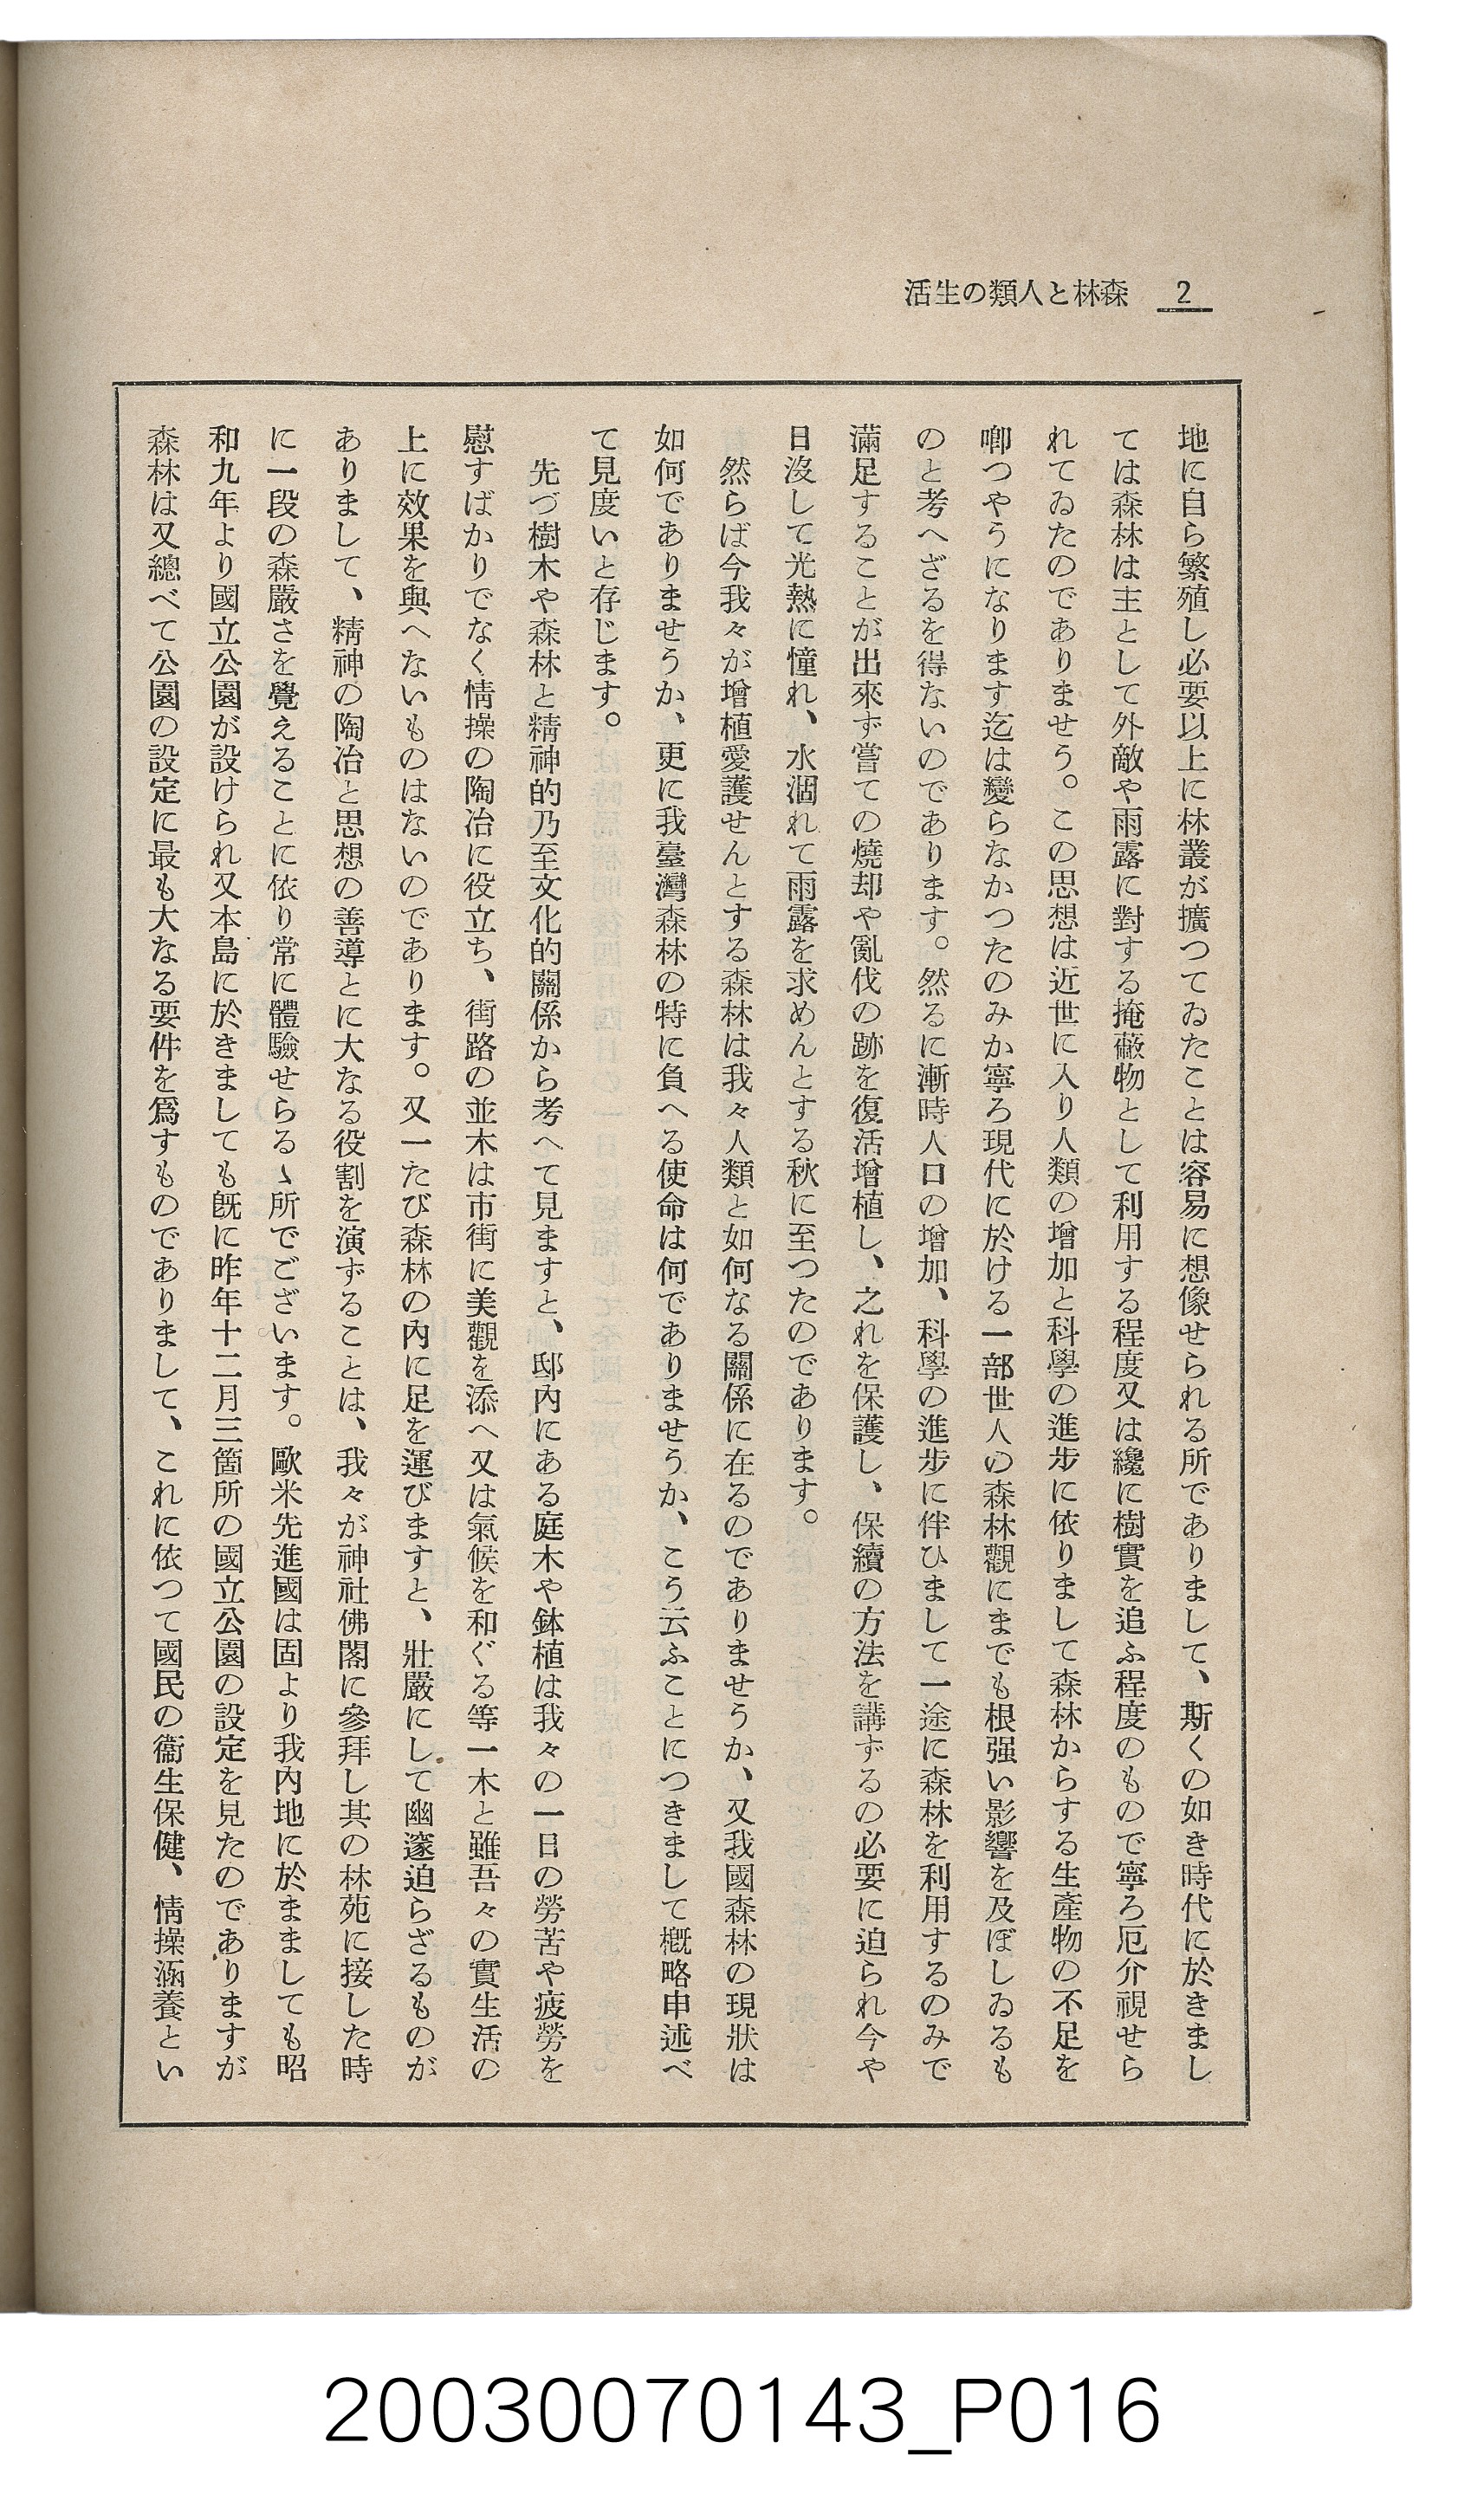 2
森林と人類の生活
地に自ら繁殖し必要以上に林叢が擴つてゐたことは容易に想像せられる所でありまして、斯くの如き時代に於きまし
ては森林は主として外敵や雨露に對する掩蔽物として利用する程度又は纔に樹實を追ふ程度のもので寧ろ厄介視せら
れてゐたのでありませう。この思想は近世に入り人類の增加と科學の進步に依りまして森林からする生產物の不足を
喞つやうになります迄は變らなかつたのみか寧ろ現代に於ける一部世人の森林觀にまでも根强い影響を及ぼしゐるも
のと考へざるを得ないのであります。然るに漸時人口の增加、科學の進步に伴ひまして一途に森林を利用するのみで
滿足することが出來ず嘗ての燒却や亂伐の跡を復活增植し、之れを保護し、保續の方法を講ずるの必要に迫られ今や
日沒して光熱に憧れ、水涸れて雨露を求めんとする秋に至つたのであります。
然らば今我々が增植愛護せんとする森林は我々人類と如何なる關係に在るのでありませうか、又我國森林の現狀は
如何でありませうか、更に我臺灣森林の特に負へる使命は何でありませうか、こう云ふことにつきまして槪略申述べ
て見度いと存じます。
先づ樹木や森林と精神的乃至文化的關係から考へて見ますと、邸內にある庭木や鉢植は我々の一日の勞苦や疲勞を
慰すばかりでなく情操の陶冶に役立ち、街路の並木は市街に美觀を添へ又は氣候を和ぐる等一木と雖吾々の實生活の
上に效果を與へないものはないのであります。又一たび森林の內に足を運びますと、壯嚴にして幽邃迫らざるものが
ありまして、精神の陶冶と思想の善導とに大なる役割を演ずることは、我々が神社佛閣に參拜し其の林苑に接した時
に一段の森嚴さを覺えることに依り常に體驗せらるゝ所でございます。歐米先進國は固より我內地に於ましても昭
和九年より國立公園が設けられ又本島に於きましても旣に昨年十二月三箇所の國立公園の設定を見たのでありますが
森林は又總べて公園の設定に最も大なる要件を爲すものでありまして、これに依つて國民の衞生保健、情操涵養とい
20030070143_P016